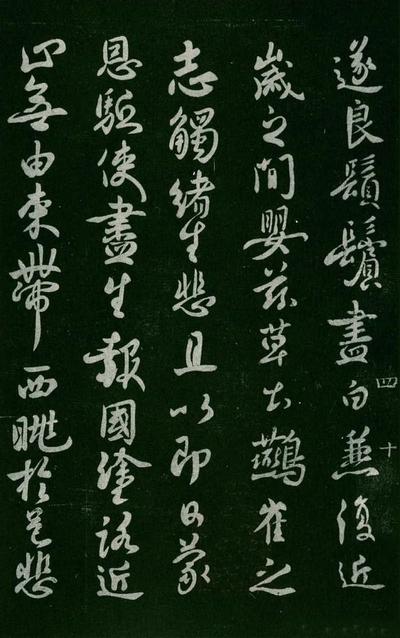 遂良鬚鬢盡白兼復近
四十
歲之間嬰茲草土鷰雀之
志觸緒生悲且以即日蒙
恩驅使盡生報國塗路近
止無由束帶西眺於邑悲